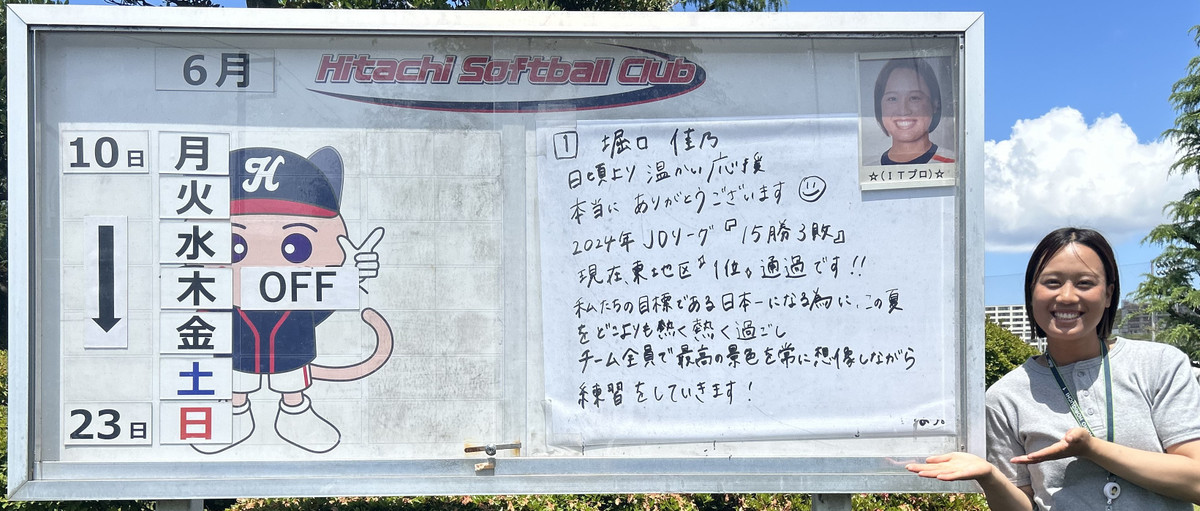 6月
Hitachi Softball Club
10日
月
火
水
木
金
土
23日
日
H
OFF
☆(ITプロ)☆
1 堀口 佳乃
日頃より 温かい 応援
本当に ありがとうございます
2024年 JDリーグ『15勝3敗』
現在、東地区"1位"通過です!!
私たちの目標である日本一になる為に、この夏
をどこよりも熱く熱く過ごし
チーム全員で最高の景色を常に想像しながら
練習をしていきます!